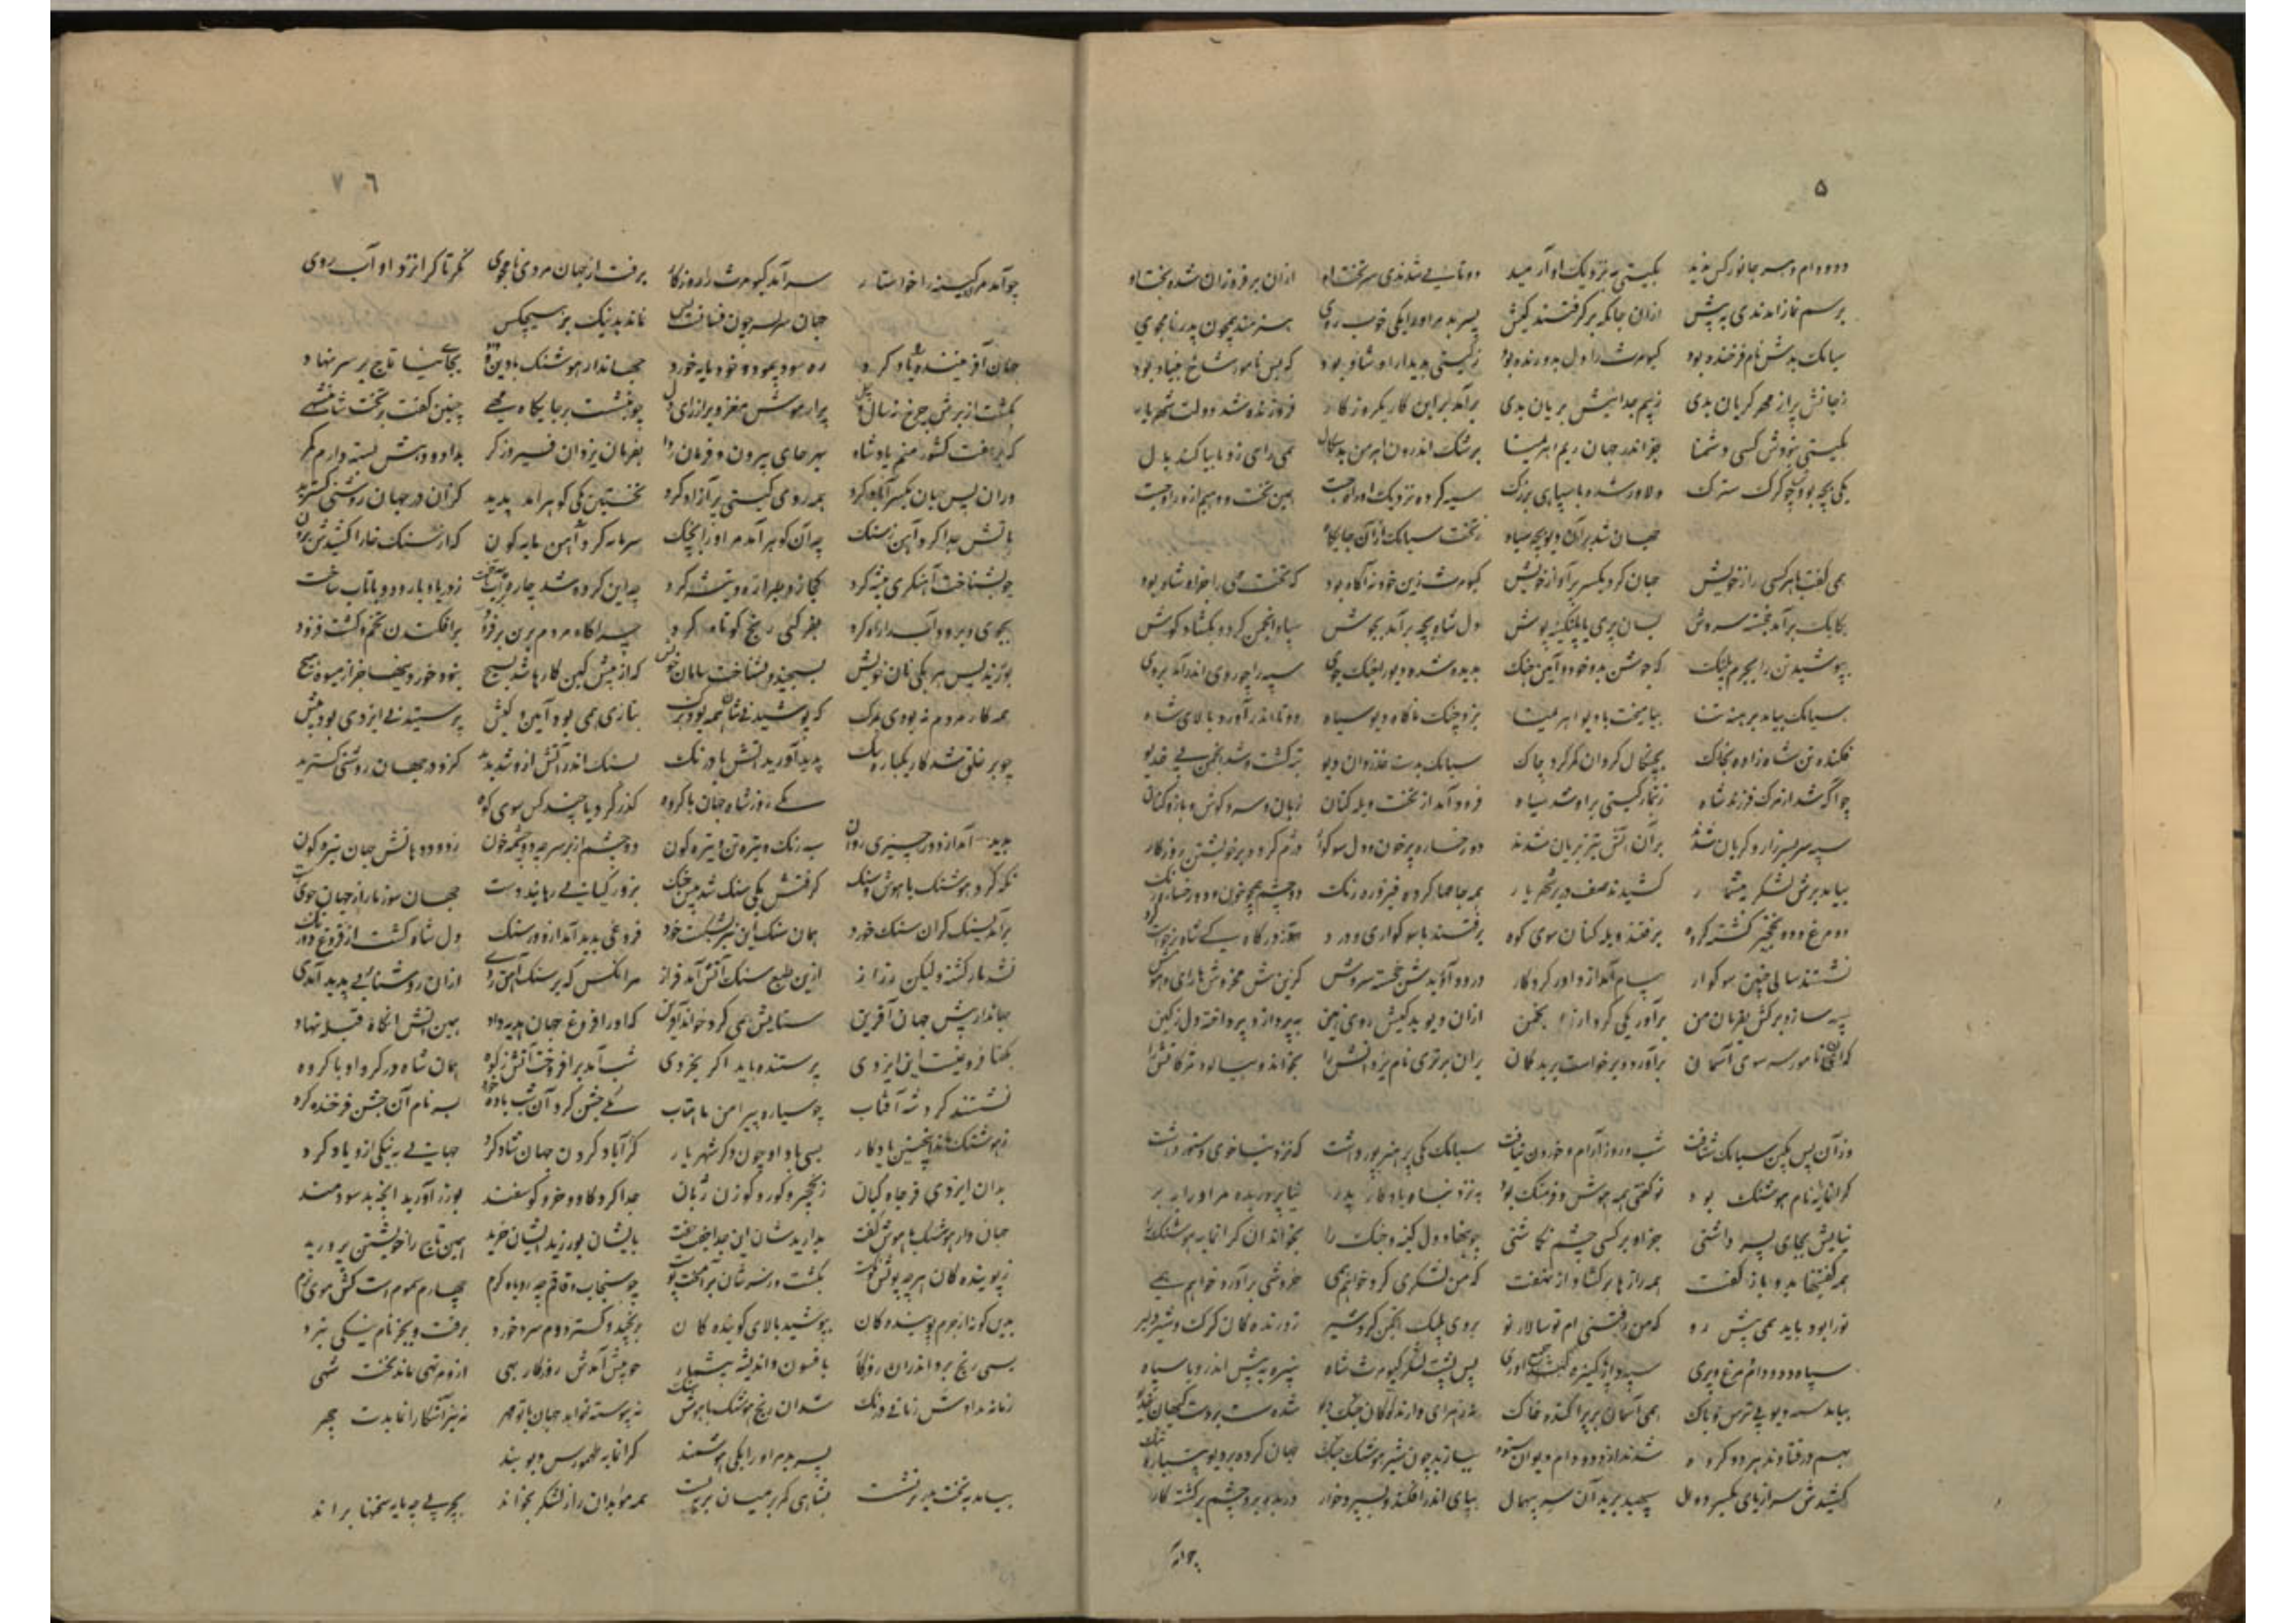 ۵
دد و دام و هر جانور کش بدید بگیتی بنزدیک او آرمید دوتا می شدندی سر تخت او ازان بر فروزان شده بخت او
برسم نماز آمدندی به پیش ازان جایگه بر گرفتند کیش پسر بد مر او را یکی خوب روی هنرمند همچون پدر نامجوی
سیامک بدش نام فرخنده بود کیومرث را دل بدو زنده بود ز گیتی بدیدار او شاد بود که بس نامور شاخ بنیاد بود
بجانش پر از مهر گریان بدی ز بیم جداییش بریان بدی برآمد برین کار یکروزکار فروزنده شد دولت شهریار
بگیتی نبودش کسی دشمنا جز اندر جهان ریم اهرمنا برشک اندرون اهرمن بدسگال همی رای زد تا
یکی بچه بودش چو گرگ سترگ دلاور شده با سپاهی بزرگ سپه کرد و نزدیک او راه جست همین تخت و دیهیم ازو باز جست
جهان شد بران دیو بچه سیاه ز بخت سیامک ازان جایگاه
همی گفت با هر کسی راز خویش جهان کرد یکسر پر آواز خویش کیومرث زین خود نه آگاه بود که تخت مهی را جز او شاه بود
یکایک برآمد خجسته سروش بسان پری پلنگینه پوش دل شاه بچه برآمد بجوش سپاه انجمن کرد و بگشاد گوش
بپوشید تن را بچرم پلنگ که جوشن بدو خود و آیین جنگ پذیره شده دیو را جنگ جوی سپه را چو روی اندر آمد بروی
سیامک بیامد برهنه تنا بیامیخت با دیو اهرمنا بزد چنگ ناگاه دیو سیاه دوتا اندر آورد بالای شاه
فکنده تن شاهزاده بخاک بچنگال کردان کمر کرد چاک سیامک بدست دیو تبه گشت و شد انجمن بی خدیو
چو آگه شد از مرگ فرزند شاه ز تیمار گیتی برو شد سیاه فرود آمد از تخت ویله کنان زنان
سپه سربسر زار و گریان شدند بران آتش تیز بریان شدند دو رخساره پر خون و دل سوگوار دژم کرده بر خویشتن روزگار
بیامد برش لشکر بیشمار کشیدند صف بر در شهریار همه جامها کرده فیروزه رنگ دو چشم پر خون و دو رخساره رنگ
دد و مرغ و نخجیر گشته گروه برفتند ویله کنان سوی کوه برفتند با سوگواری و درد ز درگاه کی شاه برخاست گرد
نشستند سالی چنین سوگوار پیام آمد از داور کردگار درود آوریدش خجسته سروش کزین بیش مخروش و باز آر هوش
سپه ساز و برکش بفرمان من برآور یکی گرد ازان انجمن ازان دیو بدکیش روی زمین بپرداز و پردخته دل ز کین
کی نامور سر سوی آسمان برآورد و برخواست بر بدگمان بران برتری نام یزدانش را بخواند و بپالود مژگانش را
وزان پس بکین سیامک شتافت شب و روز آرام و خوردن نیافت سیامک یکی پر هنر پور داشت که نزد نیا جای دستور داشت
گرانمایه را نام هوشنگ بود تو گفتی همه هوش و فرهنگ بود به نزد نیا یادگار پدر نیا پروریده مر او را ببر
نیایش بجای پسر داشتی جز او بر کسی چشم نگماشتی چو بنهاد دل کینه و جنگ را بخواند آن گرانمایه هوشنگ را
همه گفتنیها بدو باز گفت همه رازها برگشاد از نهفت که من لشکری کرد خواهم همی خروشی برآورد خواهم همی
ترا بود باید همی پیش رو که من رفتنی ام تو سالار نو پری و پلنگ انجمن کرد و شیر ز درندگان گرگ و ببر دلیر
سپاه دد و دام و مرغ و پری پس پشت لشکر کیومرث شاه نبیره به پیش اندرون با سپاه
بیامد سیه دیو بی ترس و باک همی بآسمان بر پراکند خاک
بهم در فتادند هر دو گروه شدند از دد و دام دیوان ستوه بیازید چون شیر هوشنگ چنگ جهان کرد بر دیو نستوه تنگ
کشیدش سراپای یکسر دوال سپهبد برید آن سر بیهمال بپای اندر افکند و بسپرد خوار دریده برو چرم و برگشته کار
چو آمد
۶ ۷
چو آمد مر آن کینه را خواستار سرآمد کیومرث را روزگار برفت از جهان مردی نامجوی نگر تا کرا نزد او آبروی
جهان سربسر چون فسانست و بس نماند بد و نیک بر هیچکس
جهاندار هوشنگ با رای و داد بجای نیا تاج بر سر نهاد
بگشت از برش چرخ سالی چهل پر از هوش مغز و پر از رای دل چو بنشست بر جایگاه مهی چنین گفت بر تخت شاهنشهی
که بر هفت کشور منم پادشاه بهر جای پیروز و فرمان روا بفرمان یزدان فیروزگر بداد و دهش بسته دارم کمر
وزان پس جهان یکسر آباد کرد همه روی گیتی پر از داد کرد نخستین یکی گوهر آمد پدید کزان در جهان روشنی گسترید
بآتش جدا کرد آهن ز سنگ سر مایه کرد آهن آبگون کز ان سنگ خارا کشیدش برون
چو بشناخت آهنگری پیشه کرد کجا زو تبر اره و تیشه کرد چو این کرده شد چاره آب ساخت ز دریا و رود
بجوی و برود آب را راه کرد بفر کئی رنج کوتاه کرد چراگاه مردم بدین بر فزود پراکندن تخم و کشت و درود
بورزید پس هر یکی نان خویش بسیجید و بشناخت سامان خویش که از پیش کین کارها شد بسیج نبد خوردنیها جز از میوه هیچ
همه کار مردم نبودی ببرگ که پوشیدنیشان همه بود برگ پرستیدن ایزدی بود پیش
بسنگ اندر آتش ازو شد پدید کزو در جهان روشنی گسترید
یکی روز شاه جهان با گروه گذر کرد با چند کس سوی کوه
پدید آمد از دور چیزی دراز سیه رنگ و تیره تن و تیره گون دو چشم از بر سر چو دو چشمه خون ز دود دهانش جهان تیره گون
نگه کرد هوشنگ با هوش و سنگ گرفتش یکی سنگ و شد پیش جنگ بزور کیانی رهانید دست جهانسوز مار از جهانجوی جست
برآمد بسنگ گران سنگ خرد همان سنگ این سنگ بشکست خرد فروغی پدید آمد از هر دو سنگ دل سنگ گشت از فروغ آذرنگ
نشد مار کشته ولیکن ز راز ازین طبع سنگ آتش آمد فراز هر آنکس که بر سنگ آهن زدی ازان روشنایی پدید آمدی
جهاندار پیش جهان آفرین ستایش همی کرد و خواند آفرین که او را فروغی چنین هدیه داد همین آتش آنگاه قبله نهاد
بگفتا فروغیست این ایزدی پرستید باید اگر بخردی شب آمد برافروخت آتش چو کوه همان شاه در گرد او با گروه
یکی جشن کرد آن شب و باده خورد سده نام آن جشن فرخنده کرد
ز هوشنگ ماند این سده یادگار بسی باد چون او دگر شهریار کز آباد کردن جهان شاد کرد جهانی به نیکی ازو یاد کرد
بدان ایزدی فر و جاه کیان ز نخجیر و گور و گوزن ژیان جدا کرد گاو و خر و گوسفند بورز آورید آنچه بد سودمند
جهاندار هوشنگ با هوش گفت بدارید شان را جدا جفت جفت بدیشان بورزید و زیشان خرید همین تاج را خویشتن پرورید
ز پویندگان هر چه مویش نکوست بکشت و ز سرشان برآهیخت پوست چو سنجاب و قاقم چو روباه گرم چهارم سمورست کش موی نرم
برین گونه از چرم پویندگان بپوشید بالای گویندگان برنجید و گسترد و خورد و سپرد برفت و بجز نام نیکی نبرد
بسی رنج برد اندران روزگار بافسون و اندیشه بیشمار چو پیش آمدش روزگار بهی ازو مردمی ماند تخت مهی
زمانه ندادش زمانی درنگ شد آن رنج هوشنگ با هوش و سنگ نه پیوسته خواهد جهان با تو مهر نه نیز آشکارا نمایدت چهر
پسر بد مر او را یکی هوشمند گرانمایه طهمورث دیو بند
بیامد به تخت پدر بر نشست بشاهی کمر بر میان بر ببست همه موبدان را ز لشکر بخواند بچربی چه مایه سخنها براند